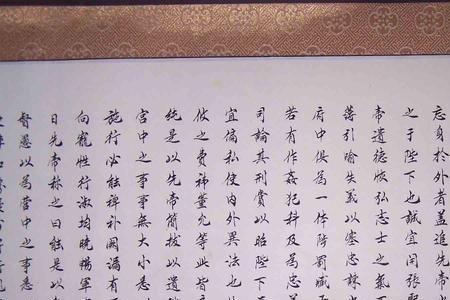 忘身於外者蓋追先帝
之于陛下也誠宜開張聖
帝遺德恢弘志士之氣不
薄引喻失義以塞忠諫
府中俱為一体陟罰臧
若有作姦犯科及為忠
司論其刑賞以昭陛下
宜偏私使內外異法也
攸之費禕董允等此皆
統是以先帝簡拔以遺
宮中之事事無大小悉
施行必能裨補闕漏有
向寵性行淑均曉暢軍
日先帝稱之曰能是以
督愚以為營中之事悉